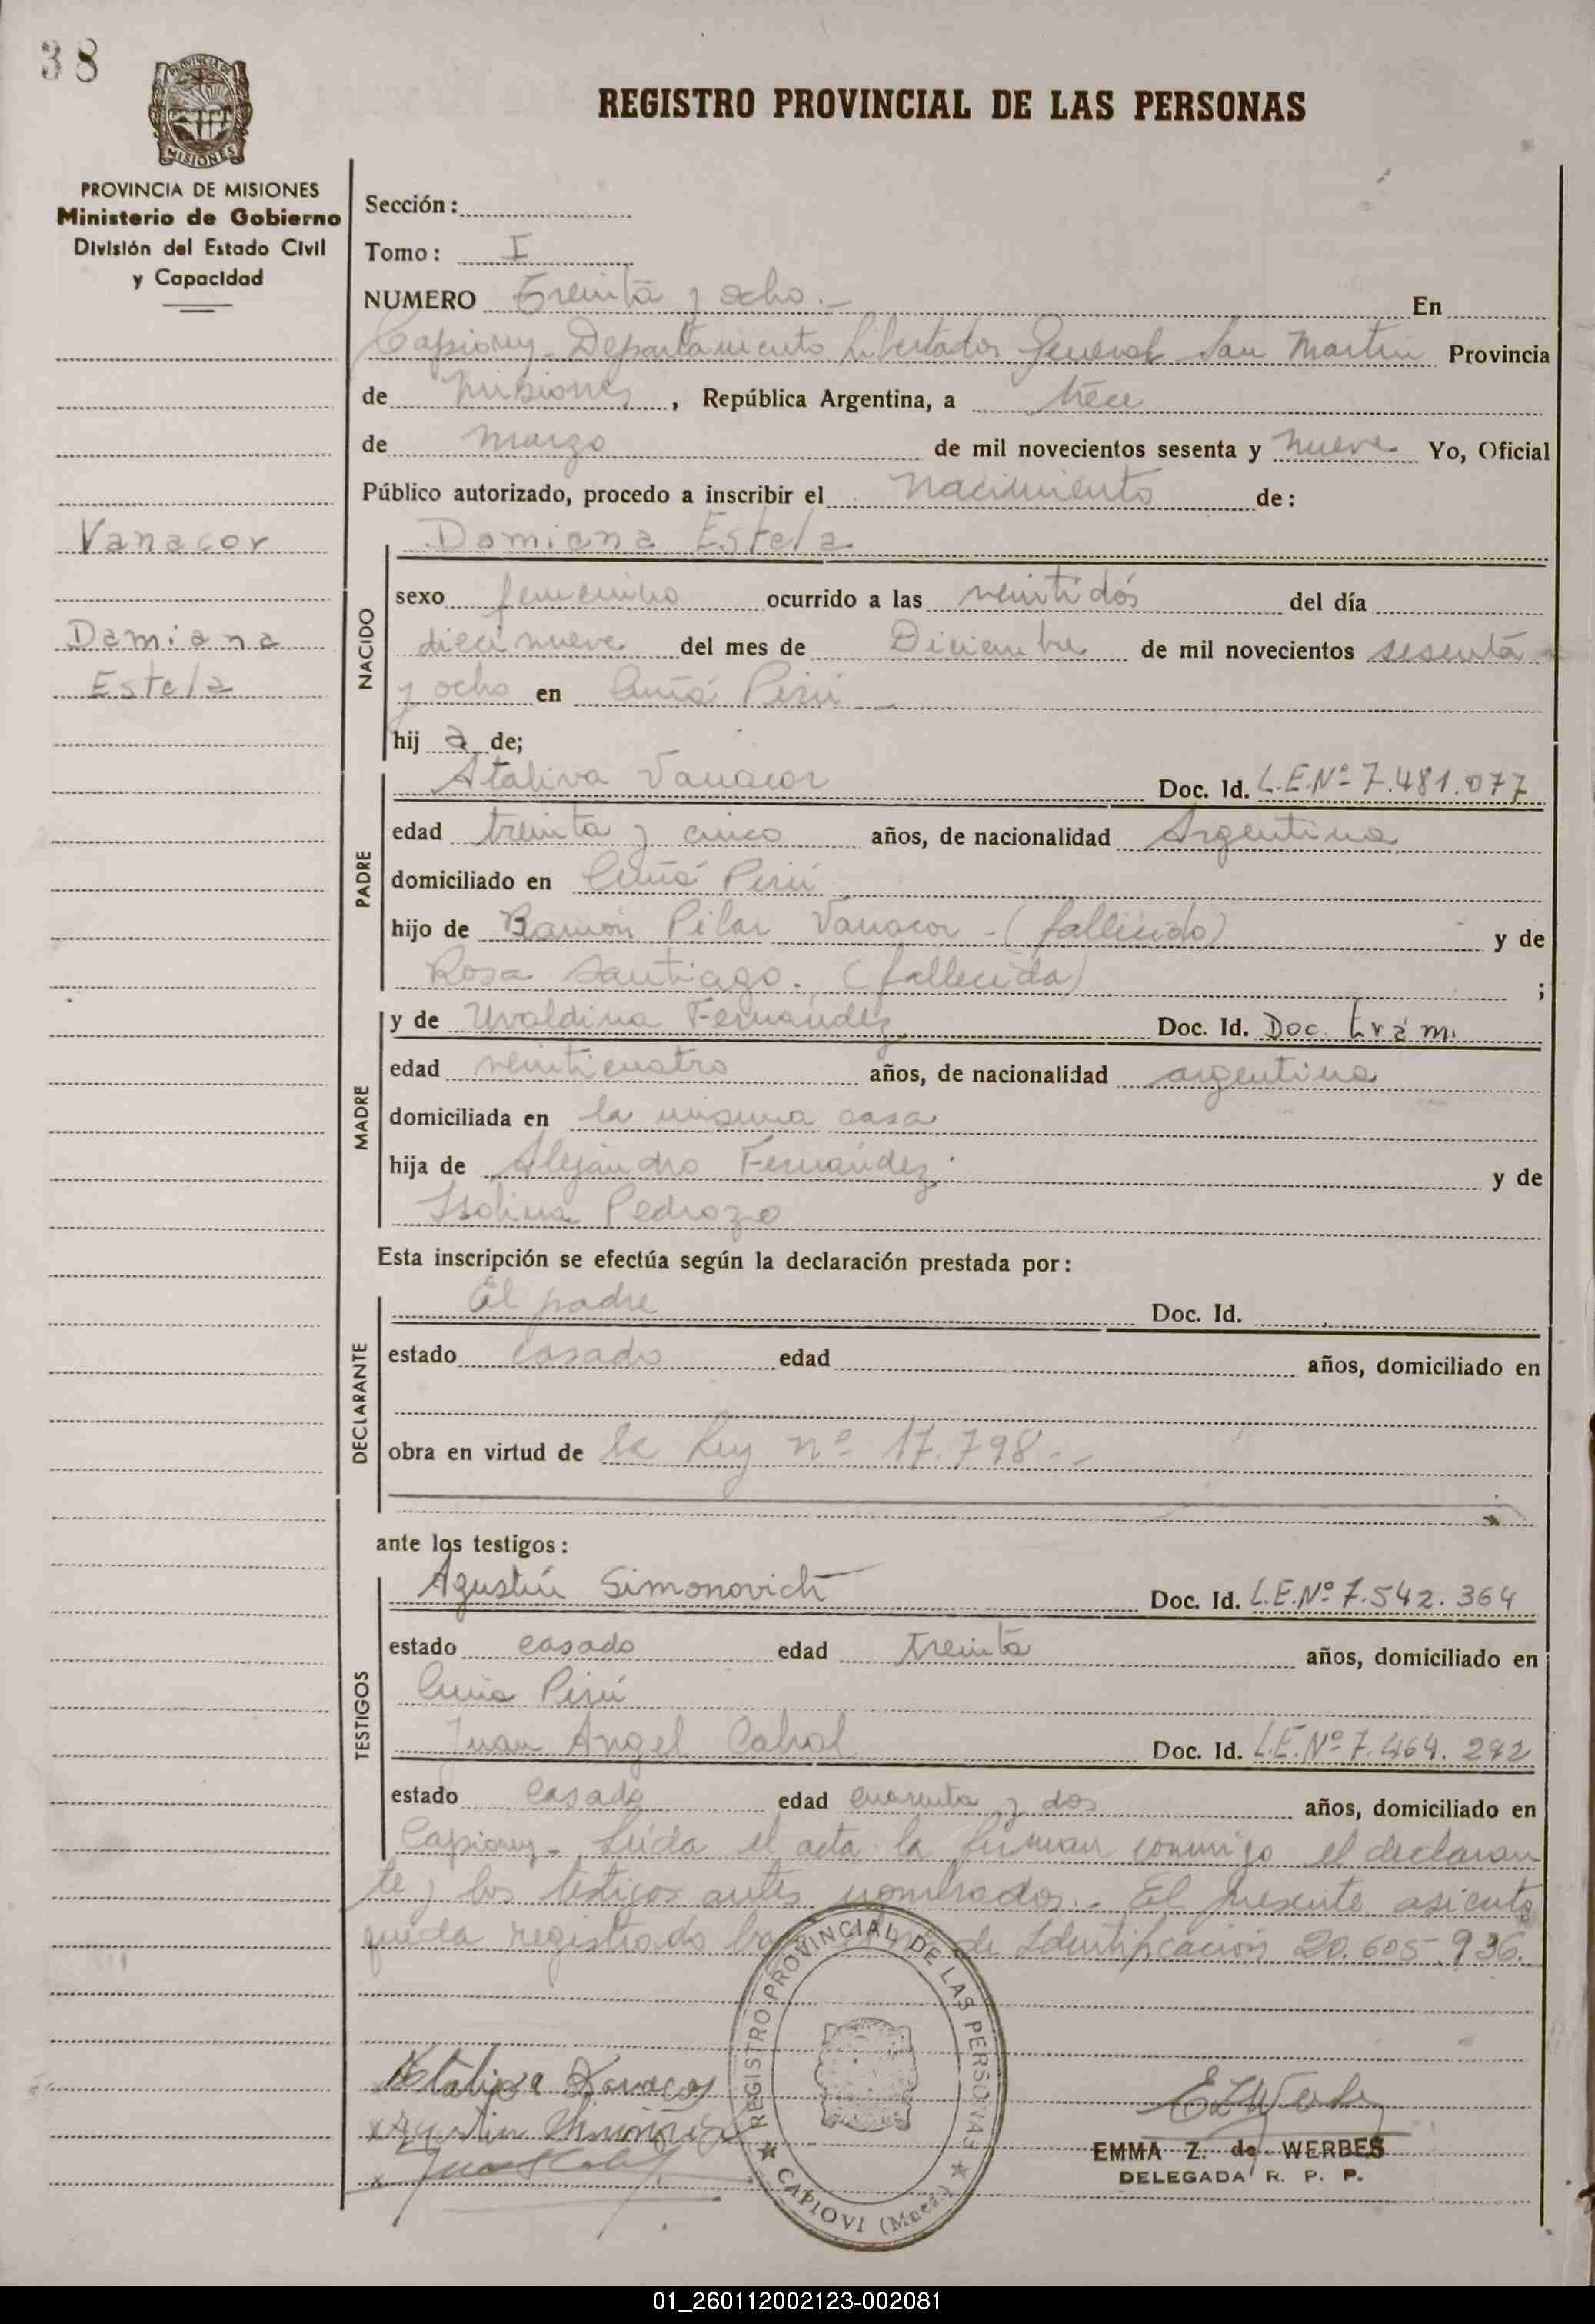 38
PROVINCIA DE MISIONES
REGISTRO PROVINCIAL DE LAS PERSONAS
PROVINCIA DE MISIONES
Ministerio de Gobierno
División del Estado Civil
y Capacidad
Vanacor
Damiana
Estela
Sección:
Tomo: I
NUMERO Treinta y ocho.- En
Capiovy - Departamento Libertador General San Martin Provincia
de Misiones, República Argentina, a trece
de Marzo de mil novecientos sesenta y nueve Yo, Oficial
Público autorizado, procedo a inscribir el Nacimiento de:
Damiana Estela
NACIDO
sexo femenino ocurrido a las veintidós del día
diecinueve del mes de Diciembre de mil novecientos sesenta
y ocho en Cuña Pirú
hij a de;
PADRE
Ataliva Vanacor Doc. Id. L.E.Nº 7.481.077
edad treinta y cinco años, de nacionalidad Argentina
domiciliado en Cuñá Pirú
hijo de Ramón Pilar Vanacor - (fallecido) y de
Rosa Santiago. (fallecida) ;
MADRE
y de Uvaldina Fernández Doc. Id. Doc. trám.
edad veinticuatro años, de nacionalidad argentina
domiciliada en la misma casa
hija de Alejandro Fernández y de
Isolina Pedrozo
Esta inscripción se efectúa según la declaración prestada por:
DECLARANTE
El padre Doc. Id.
estado casado edad años, domiciliado en
obra en virtud de la Ley nº 17.798.-
ante los testigos:
TESTIGOS
Agustín Simonovich Doc. Id. L.E.Nº 7.542.364
estado casado edad treinta años, domiciliado en
Cuña Pirú
Juan Angel Cabral Doc. Id. L.E.Nº 7.464.292
estado casado edad cuarenta y dos años, domiciliado en
Capiovy- Leída el acta la firman conmigo el declaran
te y los testigos antes nombrados.- El presente asiento
queda registrado de Identificación 20.605.936.
Ataliva Vanacor
Agustin
REGISTRO PROVINCIAL DE LAS PERSONAS
CAPIOVI (Mnes.)
EMMA Z. de WERBES
DELEGADA R. P. P.
01_260112002123-002081